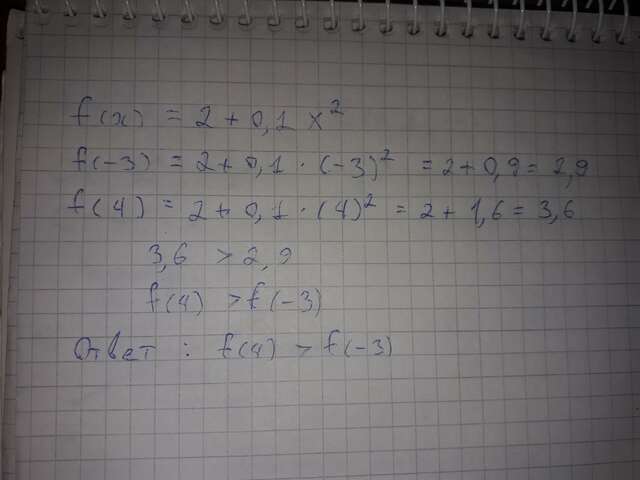 f(x) = 2 + 0,1 x²
f(-3) = 2 + 0,1 · (-3)² = 2 + 0,9 = 2,9
f(4) = 2 + 0,1 · (4)² = 2 + 1,6 = 3,6
3,6 > 2,9
f(4) > f(-3)
Ответ : f(4) > f(-3)